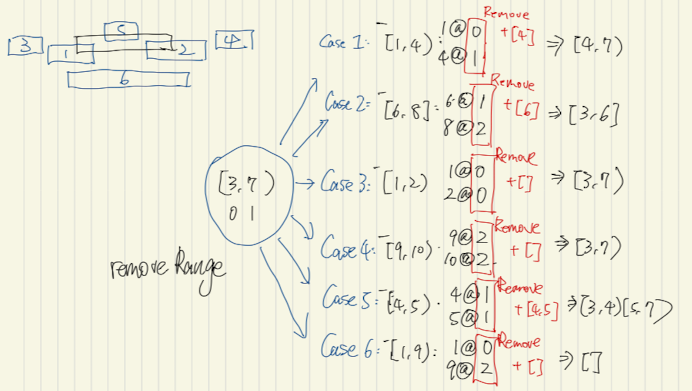 5
3 1 2 4
6
[3,7)
0 1
remove Range
Case 1: -[1,4): 1@0 4@1 Remove +[4] ⇒ [4,7)
Case 2: -[6,8]: 6@1 8@2 Remove +[6] ⇒ [3,6]
Case 3: -[1,2) 1@0 2@0 Remove +[] ⇒ [3,7)
Case 4: -[9,10): 9@2 10@2 Remove +[] ⇒ [3,7)
Case 5: -[4,5). 4@1 5@1 Remove +[4,5] ⇒ [3,4)[5,7)
Case 6: -[1,9): 1@0 9@2 Remove +[] ⇒ []